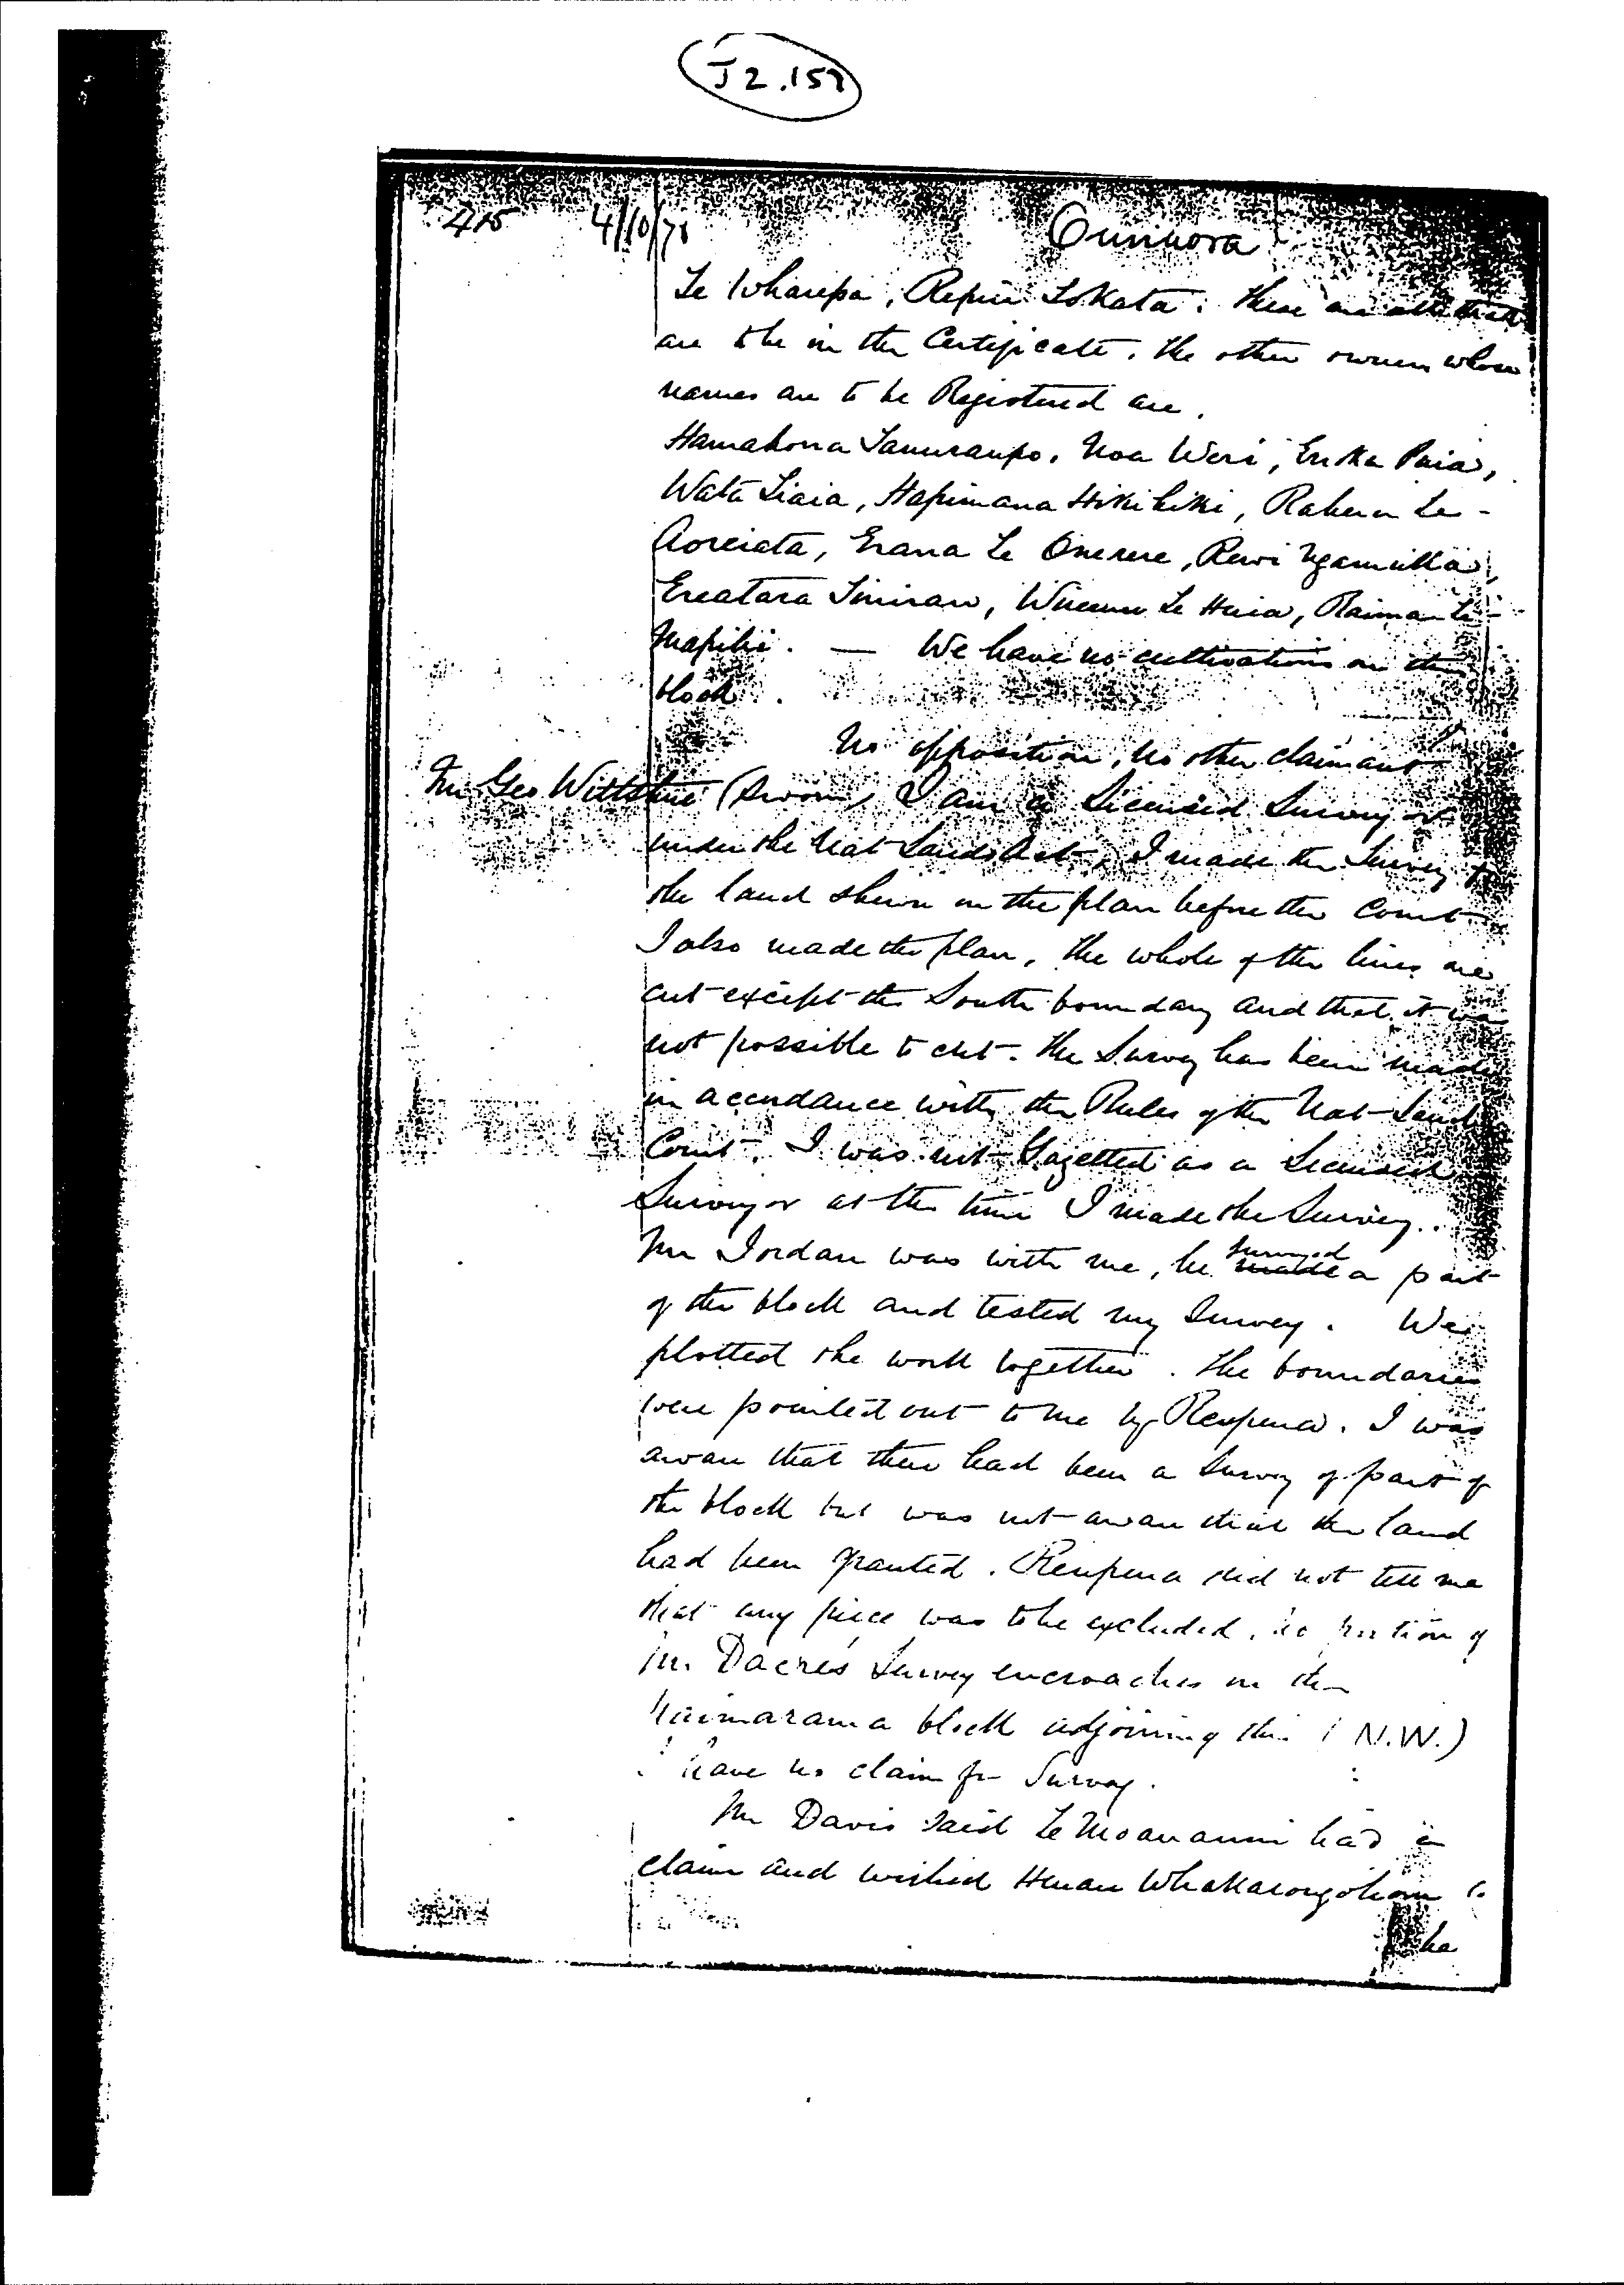 J2.158
415 4/10/71
Te Wharepa, Repin Tokata. These are all that
are to be in the Certificate. The other owners whose
names are to be Registered are.
Hamahona Tamuraupo, Noa Weri, Enoka Paia,
Wata Tiaia, Hapimana Hikihiki, Rahera Te-
Aoreiata, Erana Te Onerere, Rewi
Ereatara, Te Huia, Raima Te-
Mapihi. — We have no cultivations on the
block.
No opposition, no other claimant
Mr Geo. Wiltshire (Sworn) I am a Licensed Surveyor
under the Nat Lands Act, I made the Survey of
the land shewn on the plan before the Court
I also made the plan, the whole of the lines are
cut except the South boundary and that it was
not possible to cut. The Survey has been made
in accordance with the Rules of the Nat Land
Court. I was not Gazetted as a Licensed
Surveyor at the time I made the Survey.
Mr Jordan was with me, he surveyed made a part
of the block and tested my Survey. We
plotted the work together. The boundaries
were pointed out to me by Reupena. I was
aware that there had been a Survey of part of
the block but was not aware that the land
had been granted. Reupena did not tell me
that any piece was to be excluded, no portion of
Mr. Dacre's Survey encroaches on the
Waimarama block adjoining this (N.W.)
I have no claim for Survey.
Mr Davis said Te Moananui had a
claim and wished Henare to
be